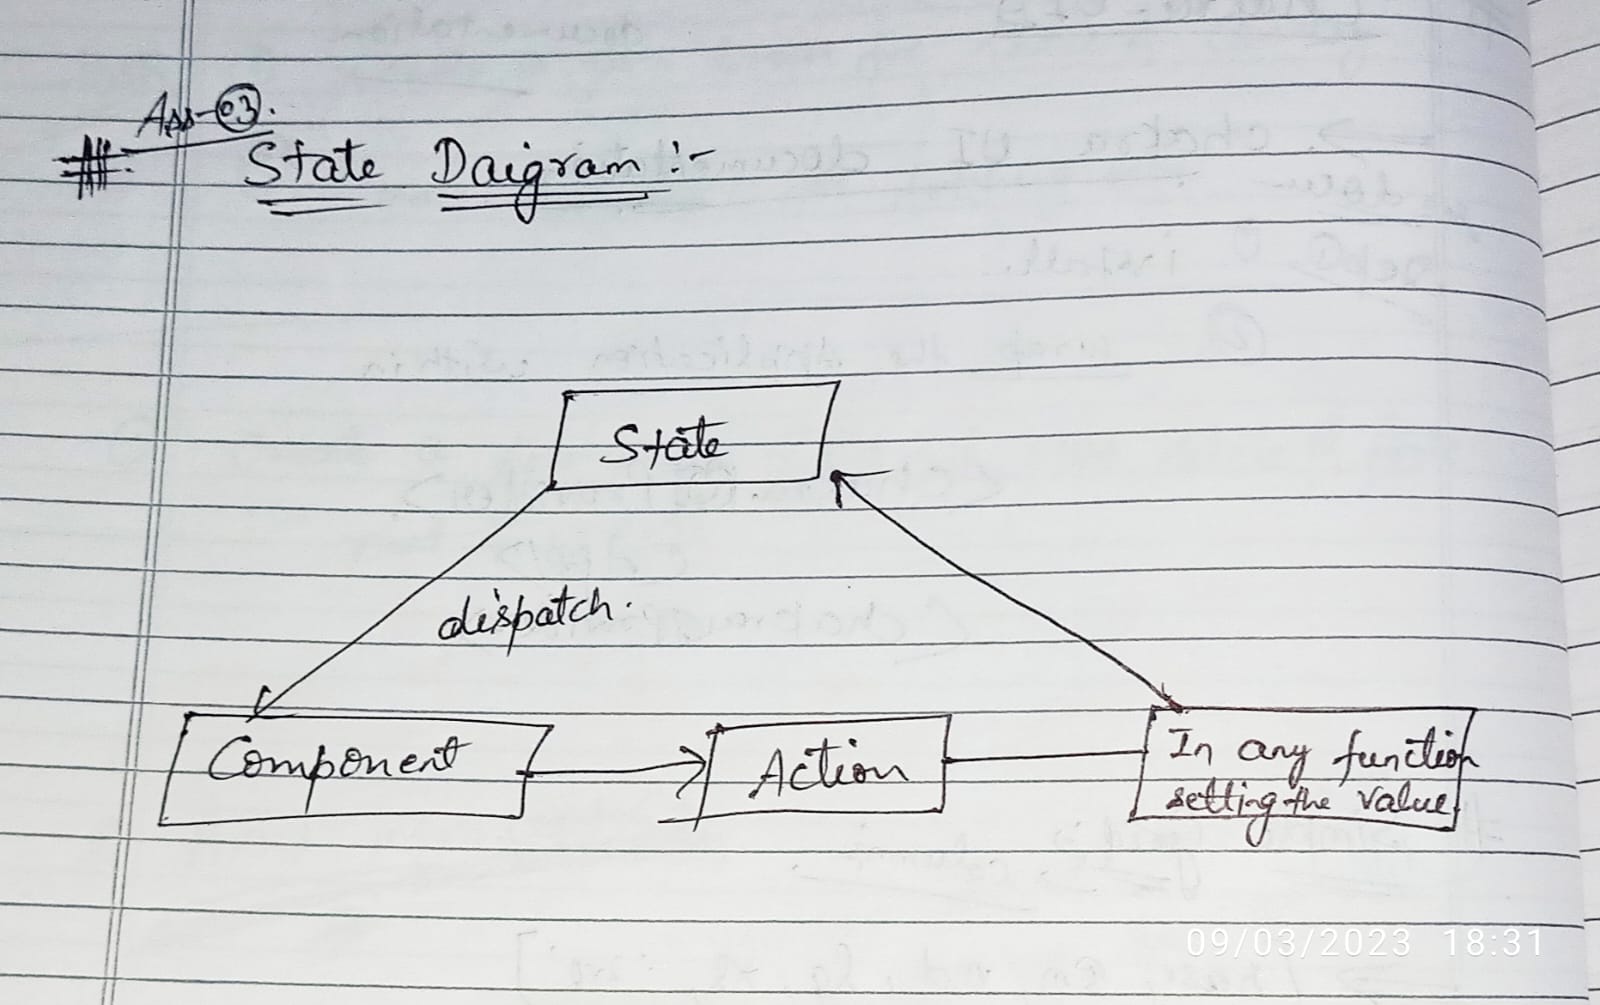 Ass-03.
# State Daigram :-
State
dispatch.
Component
Action
In any function
setting the value
09/03/2023 18:31